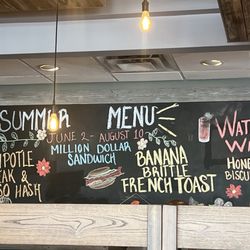 SUMMER MENU
JUNE 2 - AUGUST 10
MILLION DOLLAR
SANDWICH
BANANA
BRITTLE
FRENCH TOAST
HASH
WAT
WA
HONE
BISCU